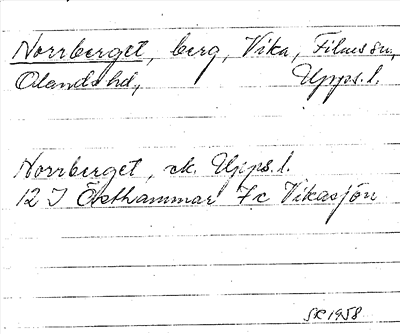 Norrberget, berg, Vika, Films sn,
Olands hd., Upps.l.
Norrberget, ek. Upps.l.
12 I Östhammar 7c Vikasjön
SK 1958